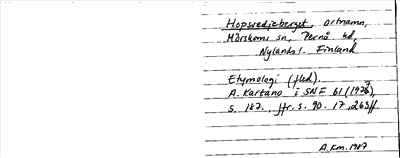 Hopsvedjeberget, ortnamn,
Mörskoms sn, Pernå hd,
Nylands l. Finland
Etymologi (fled).
A. Kartano i SNF 61 (1973),
s. 187. , jfr. s. 90. 17, 263ff.
A.Km. 1987